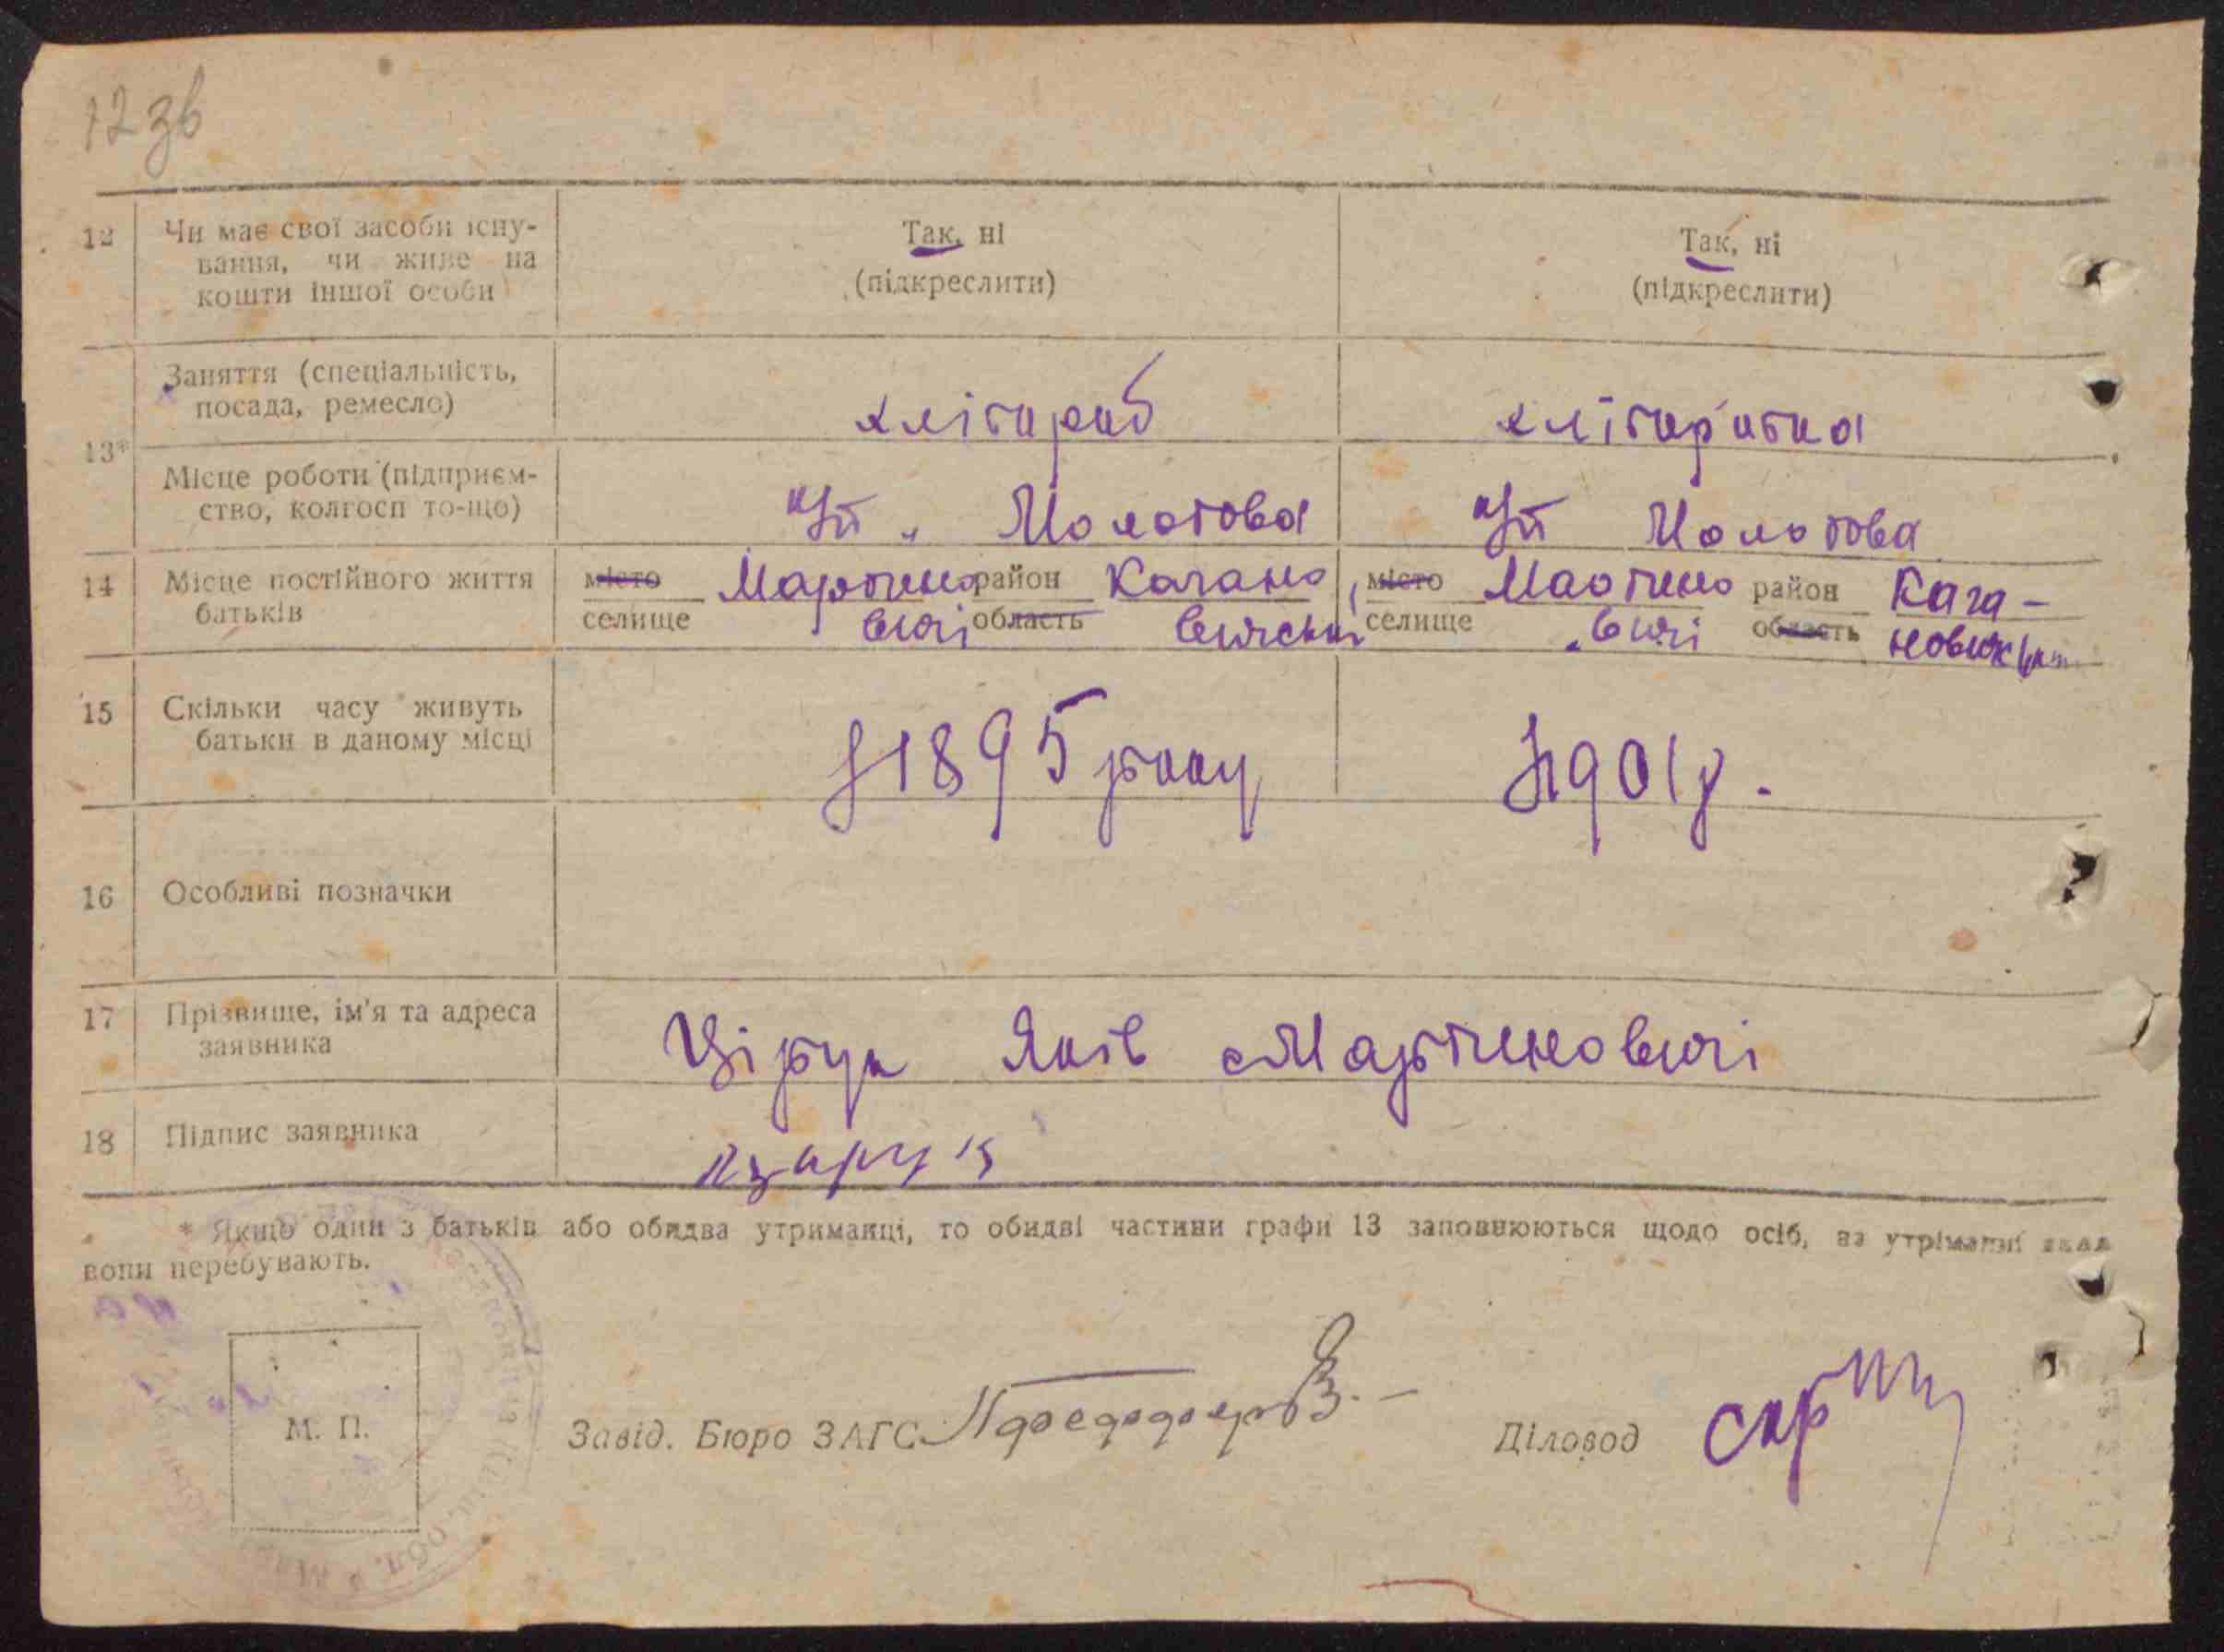 12 зв
12 Чи має свої засоби існу-
вання, чи живе на
кошти іншої особи
Так, ні
(підкреслити)
Так, ні
(підкреслити)
13*
Заняття (спеціальність,
посада, ремесло)
хлібороб
Місце роботи (підприєм-
ство, колгосп то-що)
Молотова
Молотова
14 Місце постійного життя
батьків
місто Мартино район Кагано
селище вичі область
місто Мартино район Кага-
селище вичі область
15 Скільки часу живуть
батьки в даному місці
з 1895 року
з 1901 р.
16 Особливі позначки
17 Прізвище, ім'я та адреса
заявника
Цірук Яків Мартиновичі
18 Підпис заявника
* Якщо один з батьків або обидва утриманці, то обидві частини графи 13 заповнюються щодо осіб, на утріманні яких
вони перебувають.
М. П.
Завід. Бюро ЗАГС
Діловод